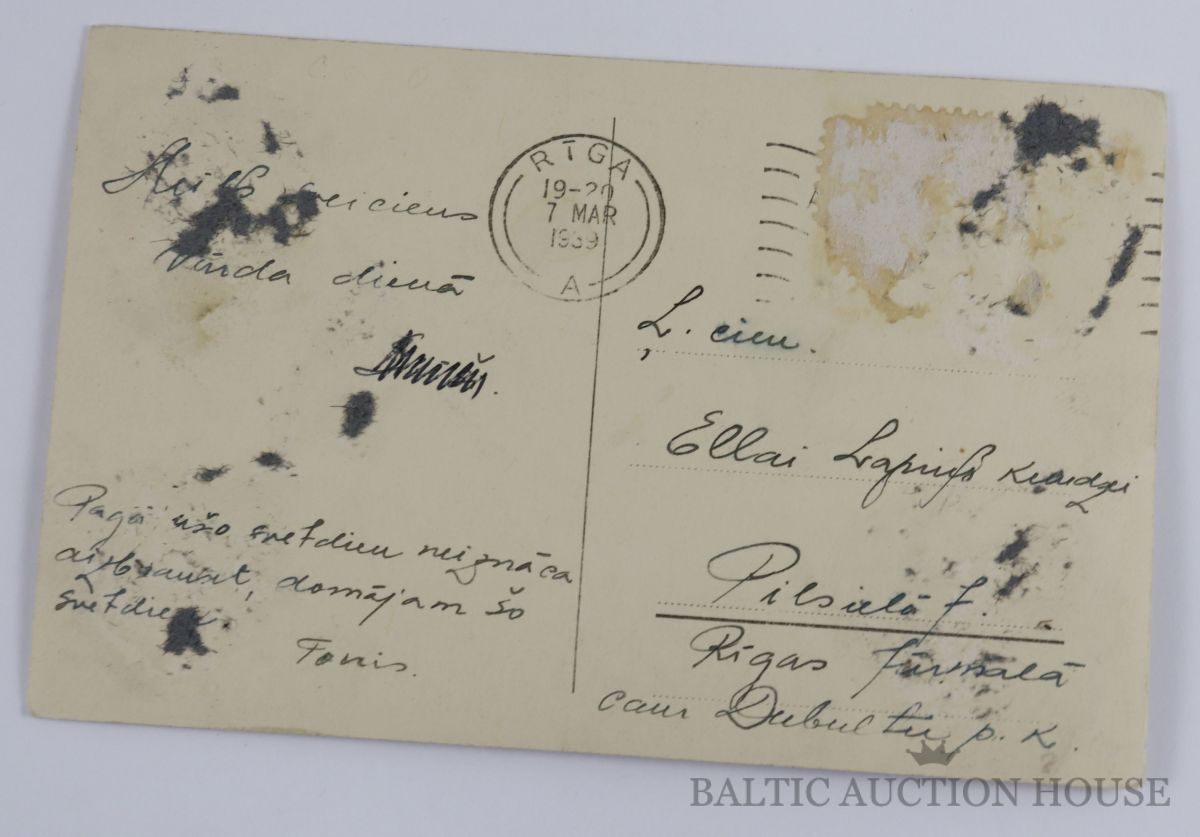 vārda dienā
Pagā ušo svētdien neiznāca
aizbraukt, domājam šo
svētdien.
Tonis.
RĪGA
19-20
7 MAR
1939
A
Ļ. cien.
Ellai Lapiņš kundzei
Pilsielā 7.
Rīgas Jūrmalā
caur Dubultu p. k.
BALTIC AUCTION HOUSE